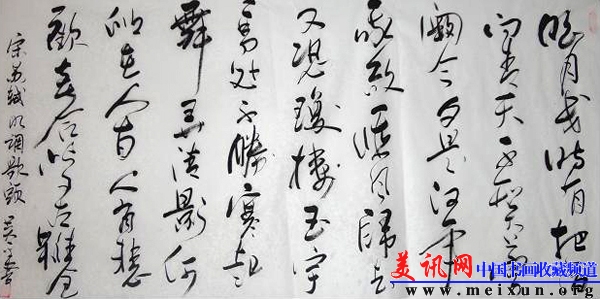 明月幾时有把酒
问青天不知天上宫
阙今夕是何年
我欲乘风归去
又恐瓊楼玉宇
高处不勝寒起
舞弄清影何
似在人间人有悲
歡离合此事古難全
宋苏轼水调歌頭
美讯网 中国书画收藏频道
www.meixun.org